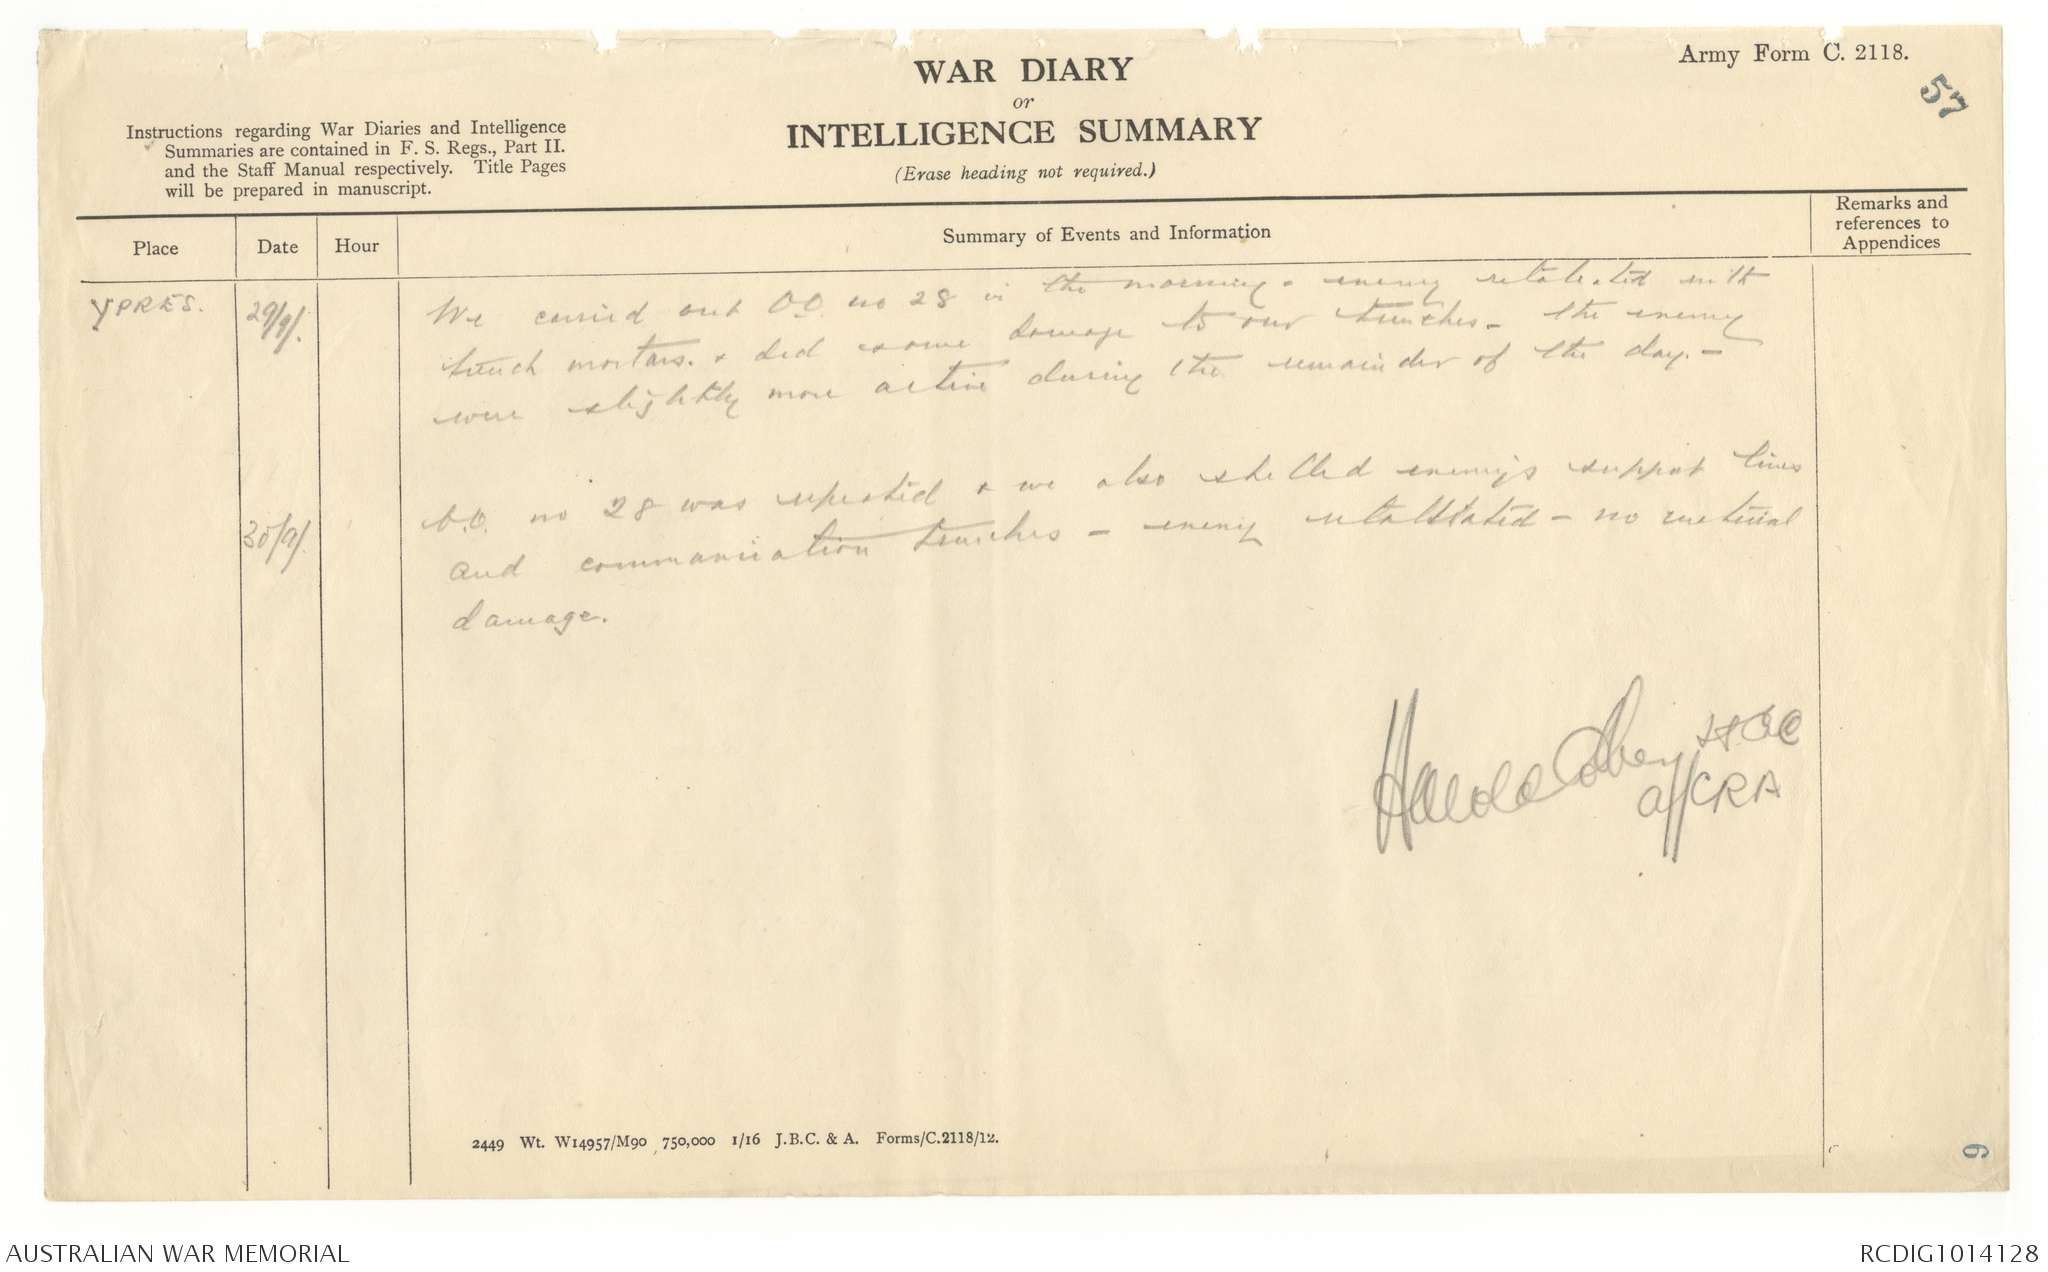 Army Form C. 2118.
57
WAR DIARY
or
INTELLIGENCE SUMMARY
(Erase heading not required.)
Instructions regarding War Diaries and Intelligence
Summaries are contained in F. S. Regs., Part II.
and the Staff Manual respectively. Title Pages
will be prepared in manuscript.
Place
Date
Hour
Summary of Events and Information
Remarks and
references to
Appendices
YPRES.
29/9/.
We carried out O.O. no 28 in the morning - enemy retaliated with
trench mortars. & did some damage to our trenches - the enemy
were slightly more active during the remainder of the day. -
30/9/.
O.O. no 28 was repeated & we also shelled enemy's support lines
and communication trenches - enemy retaliated - no material
damage.
Harold
CRA
2449 Wt. W14957/M90 750,000 1/16 J.B.C. & A. Forms/C.2118/12.
6
AUSTRALIAN WAR MEMORIAL
RCDIG1014128